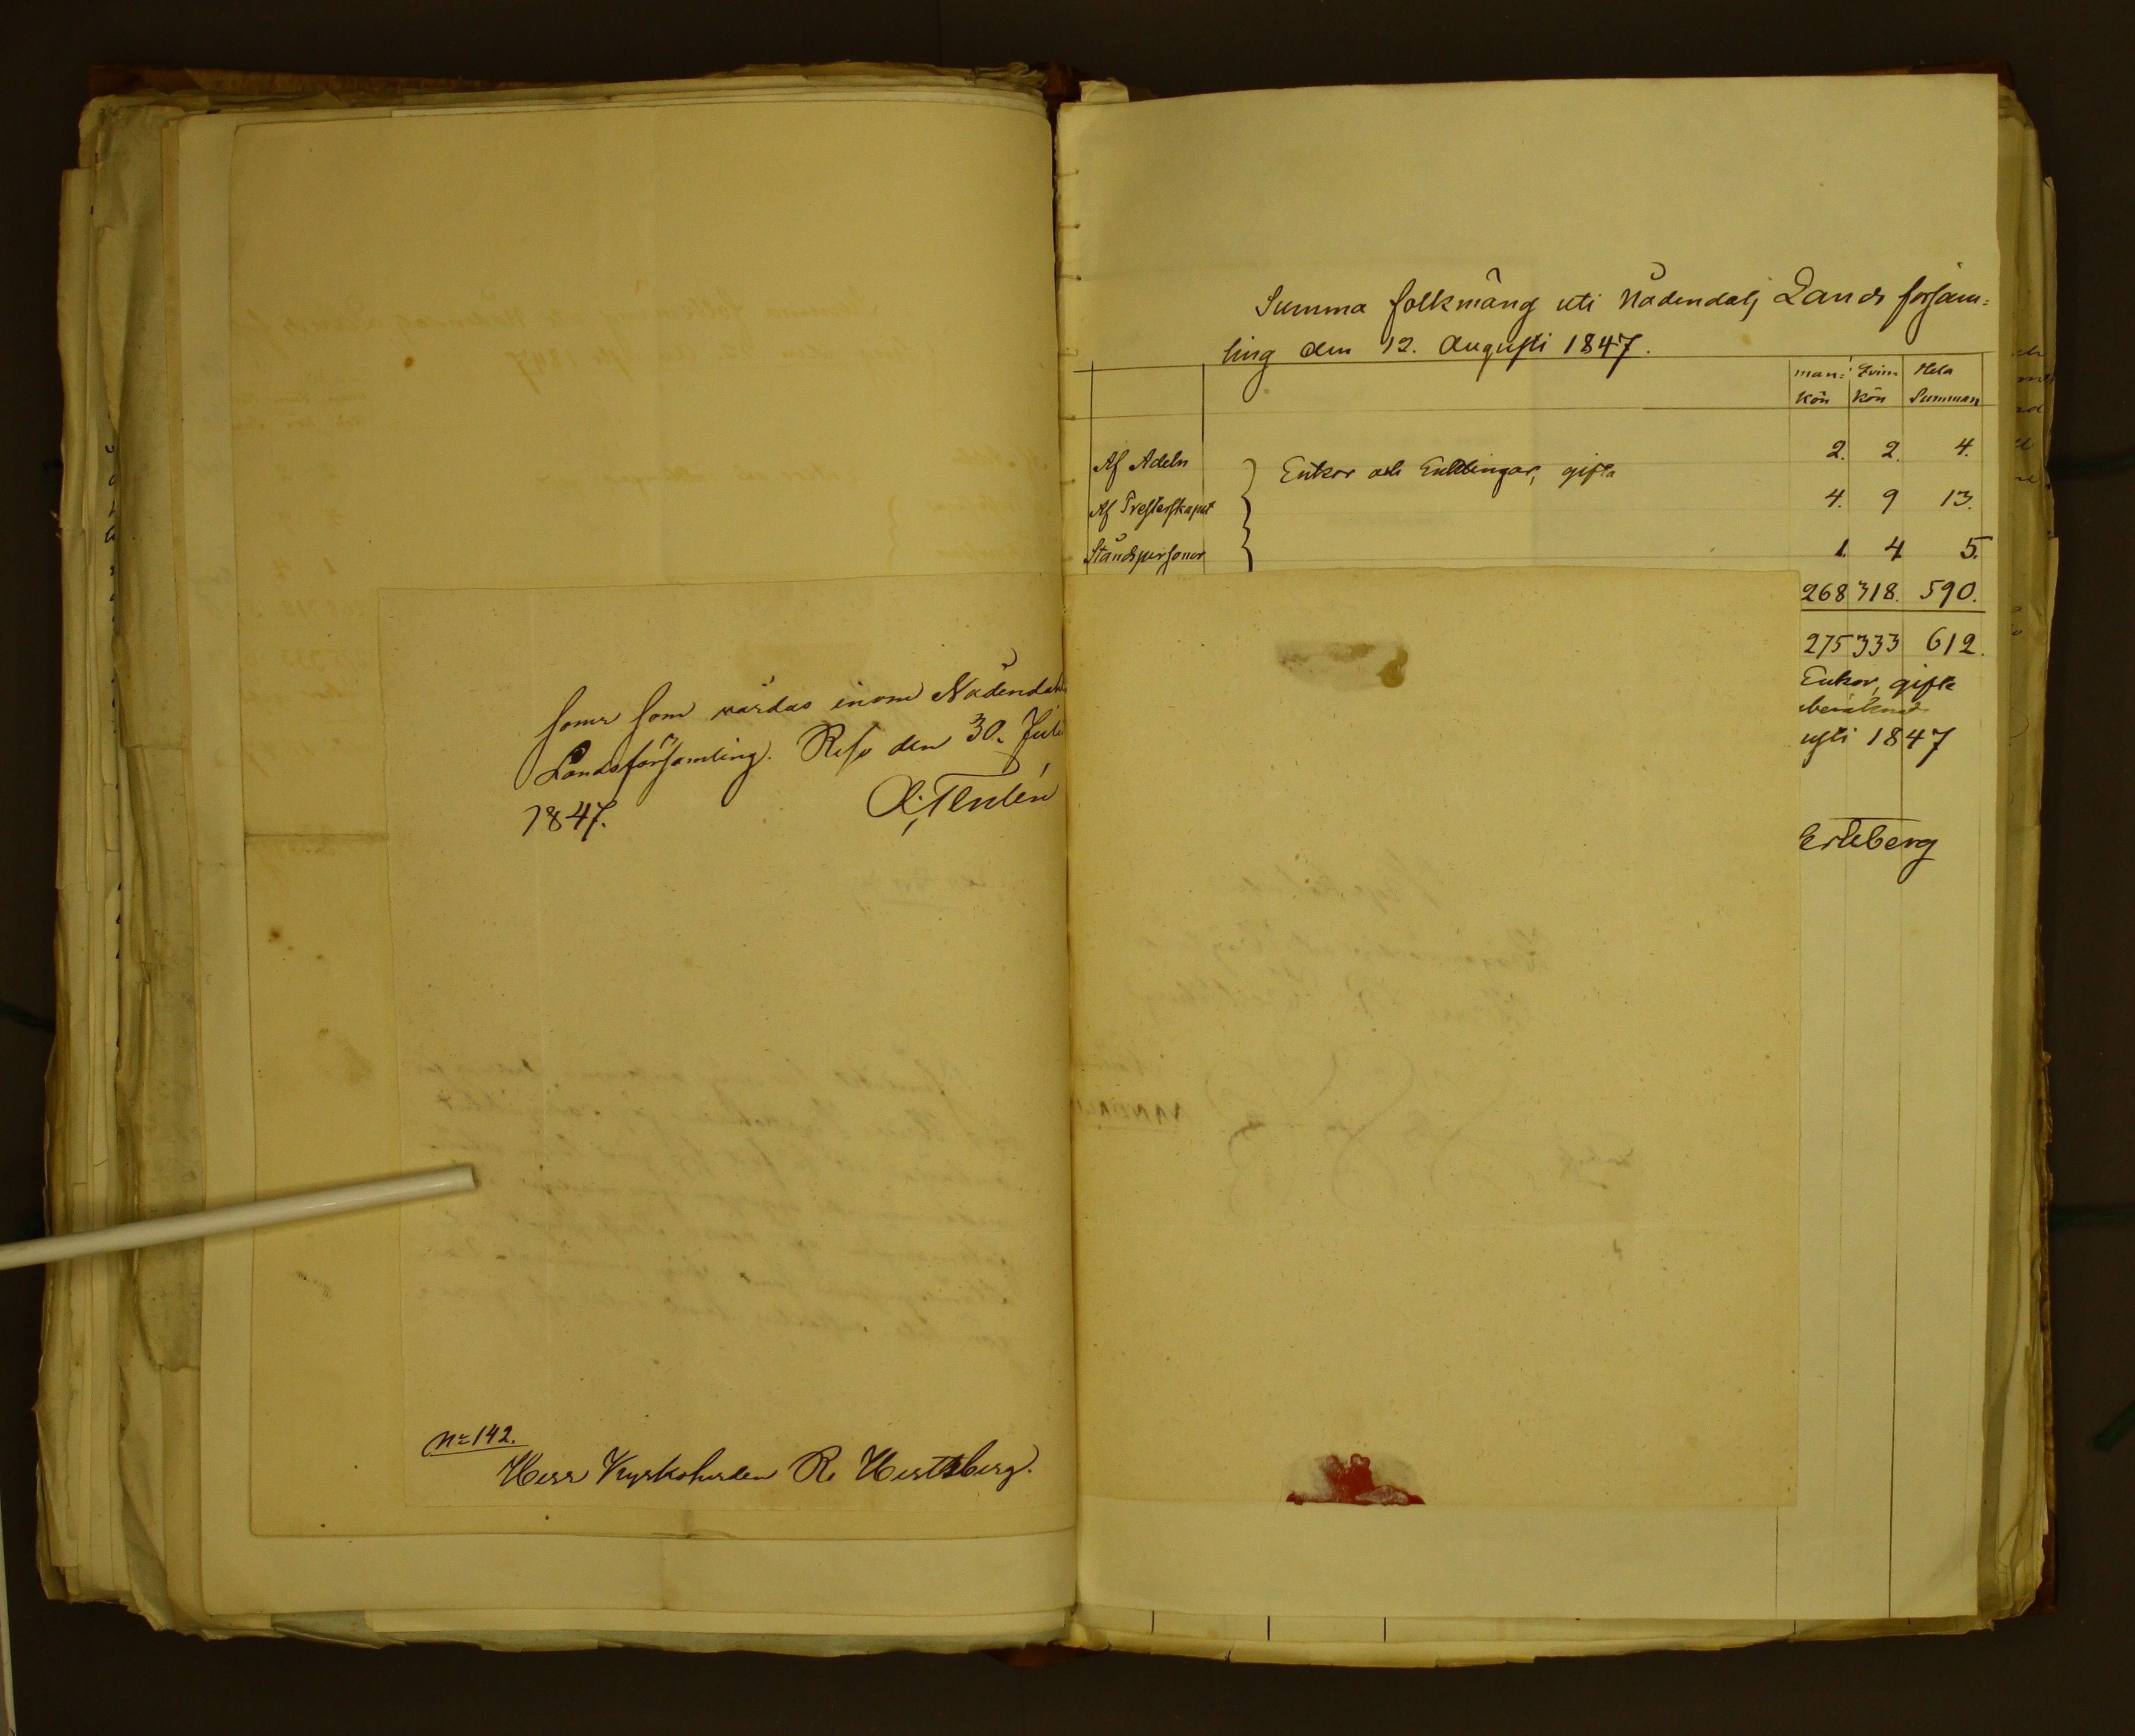 soner som vårdas inom Nådendals
Landsförsamling. Reso den 30. Juli
1847.
No 142.
Herr Kyrkoherden R. Hertzberg.
Summa folkmäng uti Nådendals Lands försam=
ling den 12. Augusti 1847.
man= Qvin Hela
kön kön Summan
Af Adeln Enkor och Enklingar, gifta 2. 2. 4.
Af Presterskapet 4. 9 13.
Ståndspersoner 1. 4 5.
268 318. 590.
275 333 612.
Enkor, gifta
beräknade
usti 1847